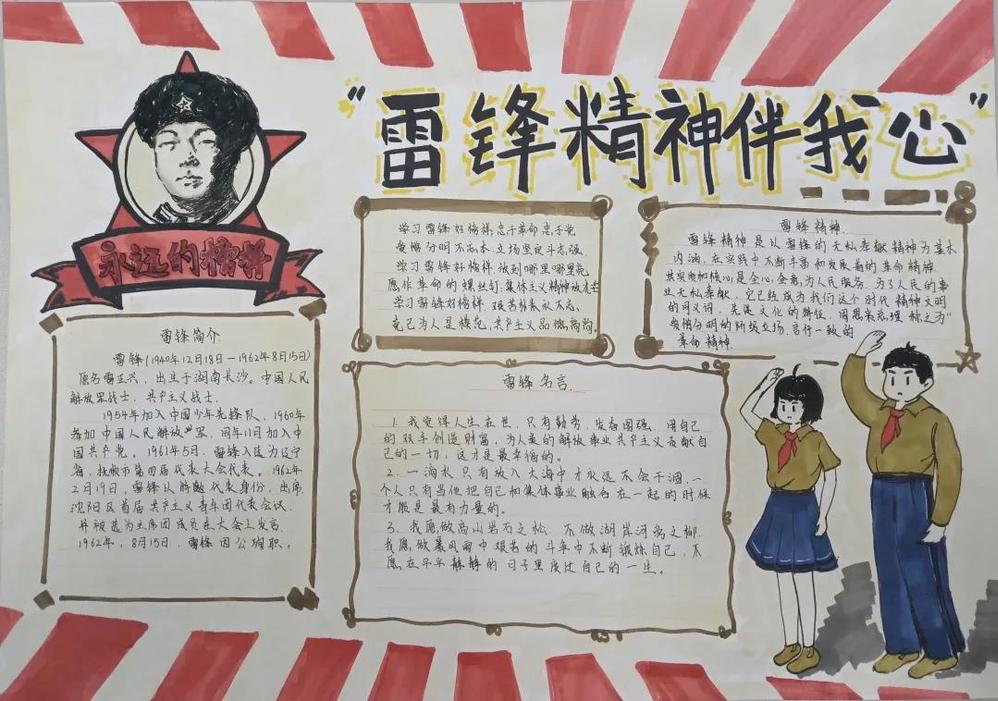 “雷锋精神伴我心”
永远的榜样
雷锋简介
雷锋(1940年12月18日—1962年8月15日)
原名雷正兴，出生于湖南长沙。中国人民
解放军战士，共产主义战士.
1954年加入中国少年先锋队，1960年
参加中国人民解放军，同年11月加入中
国共产党。1961年5月，雷锋入选为辽宁
省，抚顺市第四届代表大会代表。1962年
2月19日，雷锋以特邀代表身份，出席
沈阳区首届共产主义青年团代表会议.
并被选为主席团成员在大会上发言.
1962年，8月15日，雷锋因公殉职。
学习雷锋好榜样，忠于革命忠于党
爱憎分明不忘本，立场坚定斗志强.
学习雷锋好榜样 放到哪里哪里亮
愿作革命的螺丝钉，集体主义精神放光芒
学习雷锋好榜样，艰苦朴素永不忘，
克己为人是模范，共产主义品德高尚.
雷锋精神.
雷锋精神是以雷锋的无私奉献精神为基本
内涵，在实践中不断丰富和发展着的革命精神.
其实质和核心是全心，全意，为人民服务，为了人民的事
业无私奉献，它已经成为我们这个时代精神文明
的同义词，先进文化的特征，周恩来总理称之为“
爱憎分明的阶级立场，言行一致的
革命精神.
雷锋名言.
1.我觉得人生在世，只有勤劳，发奋图强，用自己
的双手创造财富，为人类的解放事业共产主义贡献自
己的一切，这才是最幸福的。
2.一滴水只有放入大海中才永远不会干涸，一
个人只有当他把自己和集体事业融合在一起的时候
才能是最有力量的。
3.我愿做高山岩石之松，不做湖岸河旁之柳，
我愿做暴风雨中艰苦的斗争中不断锻炼自己，不
愿在平平静静的日子里度过自己的一生。